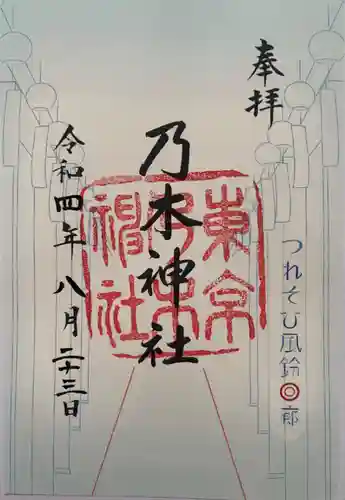 奉拝
乃木神社
東京乃木神社
令和四年八月二十三日
つれそひ風鈴
廊